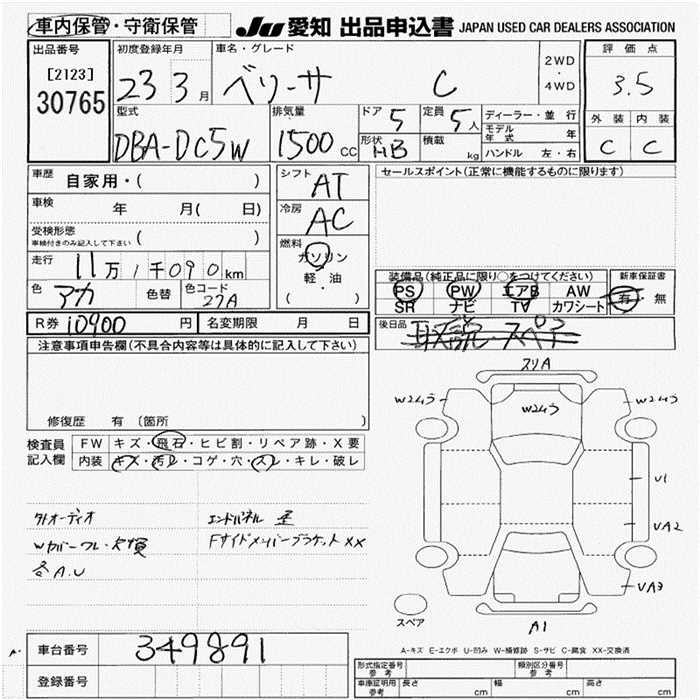 車内保管・守衛保管 JU 愛知 出品申込書 JAPAN USED CAR DEALERS ASSOCIATION
出品番号 初度登録年月 車名・グレード 2WD・4WD 評価点
[2123]
30765 23 3月 ベリーサ C 3.5
型式 排気量 ドア 5 定員 5人 ディーラー・並行 外装 内装
DBA-DC5W 1500 CC 形状 HB 積載 kg モデル年式 年 C C
ハンドル 左・右
車歴 自家用・( ) シフト AT セールスポイント(正常に機能するものに限ります)
車検 年 月( 日) 冷房 AC
受検形態 ( )
車検付きのみ記入して下さい
燃料 ガソリン
軽・油
( )
走行 11万1千090km
色 アカ 色替 色コード 27A
装備品(純正品に限り○をつけてください) 新車保証書
PS PW エアB AW 有・無
SR ナビ TV カワシート
R券 10900 円 名変期限 月 日 後日品 取説・スペア
注意事項申告欄(不具合内容等は具体的に記入して下さい)
修復歴 有 〔箇所 〕
検査員 FW キズ・飛石・ヒビ割・リペア跡・X要
記入欄 内装 キズ・汚レ・コゲ・穴・スレ・キレ・破レ
外オーディオ エンドパネル 歪
Wカバーワレ・欠損 FサイドメンバーブラケットXX
各A.U
スリA
W2ムラ W2ムラ W2ムラ
U1
UA2
UA3
スペア A1
A-キズ E-エクボ U-凹み W-補修跡 S-サビ C-腐食 XX-交換済
A.
車台番号 349891
登録番号
形式指定番号 参考 類別区分番号 参考
車庫証明用 参考 長さ cm 幅 cm 高さ cm